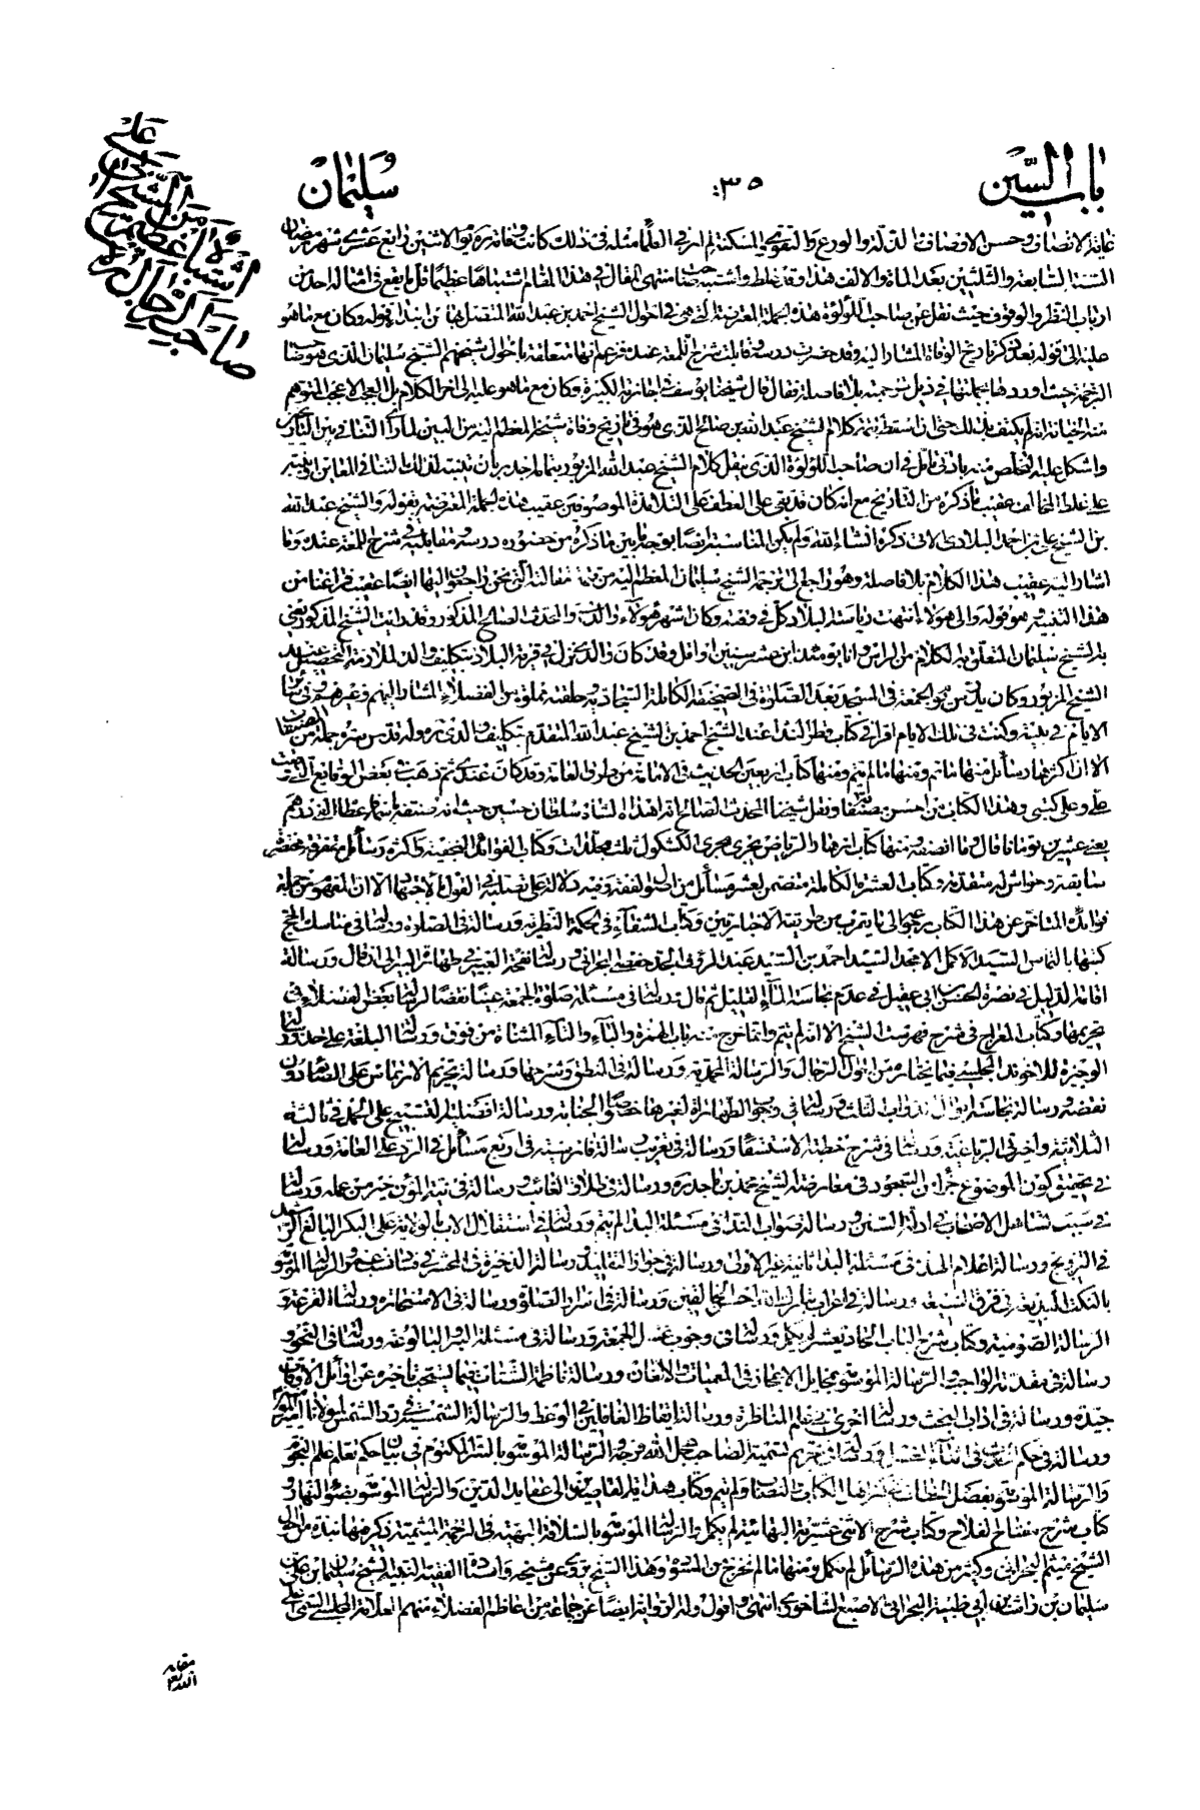 باب السين
٣٠٥
سليمان
اشتباه عظيم من الشيخ ابى على صاحب الرجال
غاية الانصاف وحسن الاوصاف والذلة والورع والتقوى والمسكنة لم ار فى العلماء مثله فى ذلك كانت وفاته ره يوم الاثنين رابع عشر شهر رمضان
السنة السابعة والثلثين بعد المائة والالف هذا وقد غلط واشتبه صاحب منتهى المقال فى هذا المقام اشتباها عظيما قل ما يقع فى امثاله احد من
ارباب النظر والوقوف حيث نقل عن صاحب اللؤلؤة هذه الجملة المعترضة التى هى فى احوال الشيخ احمد بن عبد الله المتصل بها من ابتداء قوله وكان مع ما هو
عليه الى قوله بعد ذكر تاريخ الوفاة المشار اليه وقد حضرت درسه وقابلت شرح اللمعة عنده فزعم انها متعلقة باحوال شيخهم الشيخ سليمان الذى هو صاحب
الترجمة حيث اوردها بجملتها فى ذيل ترجمته بلا فاصلة فقال قال شيخنا يوسف فى اجازته الكبيرة وكان مع ما هو عليه الى اخر الكلام بل العجب الاعجب
واشكل عليه التخلص منه
على غلط المخالف عقيب ما ذكره من التاريخ مع انه كان قد بقى على العطف على التلامذة الموصوفين عقيب هذه الجملة المعترضة بقوله والشيخ عبد الله
بن الشيخ على بن احمد البلادى الاتى ذكره انشاء الله ولم يكن المناسبة ايضا بوجه ما بين ما ذكره من حضوره درسه ومقابلته شرح اللمعة عنده وما
اشار اليه عقيب هذا الكلام بلا فاصلة وهو راجع الى ترجمة الشيخ سليمان المعظم اليه من تتمة مقالته التى نحن راجعون اليها ايضا عقيب فراغنا من
هذا التنبيه هو قوله والى هؤلاء انتهت رياسة البلاد كل فى وقته وكان اشهر هؤلاء والدى والمحدث الصالح المذكور وقد رايت الشيخ المذكور يعنى
به الشيخ سليمان المتعلق به الكلام من الراس وانا يومئذ ابن عشر سنين او اقل وقد كان والدى نزل فى قرية البلاد بتكليف والده لملازمة التحصيل عند
الشيخ المزبور وكان يدرس يوم الجمعة فى المسجد بعد الصلوة فى الصحيفة الكاملة السجادية وحلقته مملوة من الفضلاء المشار اليهم وغيرهم وفى سائر
الايام فى بيته وكنت فى تلك الايام اقرا فى كتاب قطر الندا عند الشيخ احمد بن الشيخ عبد الله المتقدم بتكليف والدى ره وله قدس سره جملة من المصنفات
الا ان اكثرها رسائل منها ما تم ومنها ما لم يتم ومنها كتاب اربعين الحديث فى الامامة من طرق العامة وقد كان عندى ثم ذهب فى بعض الوقايع التى وقعت
على وعلى كتبى وهذا الكتاب من احسن مصنفاته ونقل شيخنا المحدث الصالح انه اهداه للشاه سلطان حسين حيث انه صنفه باسمه فاعطاه الفى درهم
يعنى عشرين تومانا قال وما انصفه ومنها كتاب ازهار الرياض يجرى مجرى الكشكول ثلث مجلدات وكتاب الفوائد النجفية واكثره رسائل متفرقة مختصرة
سابقة وحواش له متقدمة وكتاب العشرة الكاملة متضمن لعشر مسائل من اصول الفقه وفيه دلالة على تصلبه فى القول بالاجتهاد الا ان المفهوم من جملة
فوائده المتاخرة عن هذا الكتاب رجوعه الى ما يقرب من طريقة الاخباريين وكتاب الشفاء فى الحكمة النظرية ورسالة فى الصلوة ورسالة فى مناسك الحج
كتبها بالتماس السيد الاكمل الامجد السيد احمد بن السيد عبد الرؤف الجدحفصى البحرانى ورسالة نفحة العبير فى طهارة البير الى ان قال ورسالة
اقامة الدليل فى نصرة الحسن بن ابى عقيل فى عدم نجاسة الماء القليل ثم قال ورسالة فى مسئلة صلوة الجمعة عينا نقضا لرسالة بعض الفضلاء فى
تحريمها وكتاب المعراج فى شرح فهرست الشيخ الا انه لم يتم وانما خرج منه باب الهمزة والباء والتاء المثناة من فوق ورسالة البلغة على حذو رسالة
الوجيزة للاخوند المجلسى فيما يختاره من احوال الرجال والرسالة المحمدية ورسالة فى المنطق وشرحها ورسالة تحريم الارتماس على الصائم دون
نقضه ورسالة نجاسة ابوال الدواب الثلث ورسالة فى وجوب الطهارة لغيرها خصوصا الجنابة ورسالة افضلية التسبيح على الحمد فى ثالثة
الثلاثية واخيرتى الرباعية ورسالة فى شرح خطبة الاستسقاء ورسالة فى تعريب رسالة فارسية فى اربع مسائل فى الرد على العامة ورسالة
فى تحقيق كون الموضوع جزءا من السجود فى معارضة الشيخ محمد بن ماجد ره ورسالة فى طلاق الغائب ورسالة فى نية المؤمن خير من عمله ورسالة
فى سبب تساهل الاصحاب فى ادلة السنن ورسالة صواب الندا فى مسئلة البدا لم يتم ورسالة فى استقلال الاب بالولاية على البكر البالغ الرشيد
فى التزويج ورسالة اعلام الهدى فى مسئلة البدا ثانية غير الاولى ورسالة فى جواز التقليد ورسالة الذخيرة فى المحشر
بالنكت البديعة فى فرق الشيعة ورسالة فى اعراب تبارك الله احسن الخالقين ورسالة فى اسرار الصلوة ورسالة فى الاستخارة ورسالة القرعة و
الرسالة الصومية وكتاب شرح الباب الحادى عشر لم يكمل ورسالة فى وجوب غسل الجمعة ورسالة فى مسئلة البئر والبالوعة ورسالة فى النحو و
رسالة فى مقدمة الواجب والرسالة الموسومة بمخايل الاعجاز فى المعميات والالغاز ورسالة ناظمة الشتات فيما يستحب تاخيره عن اوائل الاوقات
جيدة ورسالة فى اداب البحث ورسالة اخرى فى علم المناظرة ورسالة ايقاظ الغافلين فى الوعظ والرسالة الشمسية فى رد الشمس لمولانا امير المؤمنين
ورسالة فى حكم الحدث فى اثناء الغسل ورسالة فى تحريم تسمية الصاحب عجل الله فرجه والرسالة الموسومة بالسر المكتوم فى بيان حكم تعلم علم النجوم
والرسالة الموسومة بفصل الخطاب ولم يتم وكتاب هداية القاصدين الى عقايد الدين والرسالة الموسومة بضوء النهار و
كتاب شرح مفتاح الفلاح وكتاب شرح الاثنى عشرية البهائية لم يكمل والرسالة الموسومة بالسلافة البهية فى الترجمة الميثمية ذكر فيها نبذة من احوال
الشيخ ميثم البحرانى وكثير من هذه الرسائل لم يكمل ومنها ما لم يخرج من المسودة وهذا الشيخ يروى عن شيخه واستاده الفقيه النبيه الشيخ سليمان بن على بن
سليمان بن راشد بن ابى ظبية البحرانى الاصبعى الشاخورى انتهى واقول وله الرواية ايضا عن جماعة من اعاظم الفضلاء منهم العلامة المجلسى السمى